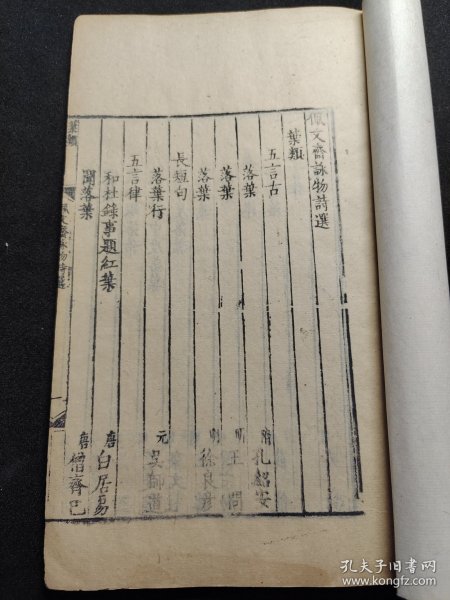 佩文齋詠物詩選
葉類
五言古
落葉 隋 孔紹安
落葉 明 王問
落葉 明 徐良彥
長短句
落葉行 元 吳師道
五言律
和杜錄事題紅葉 唐 白居易
聞落葉 唐 僧齊己
葉類
佩文齋詠物詩選
孔夫子旧书网
www.kongfz.com